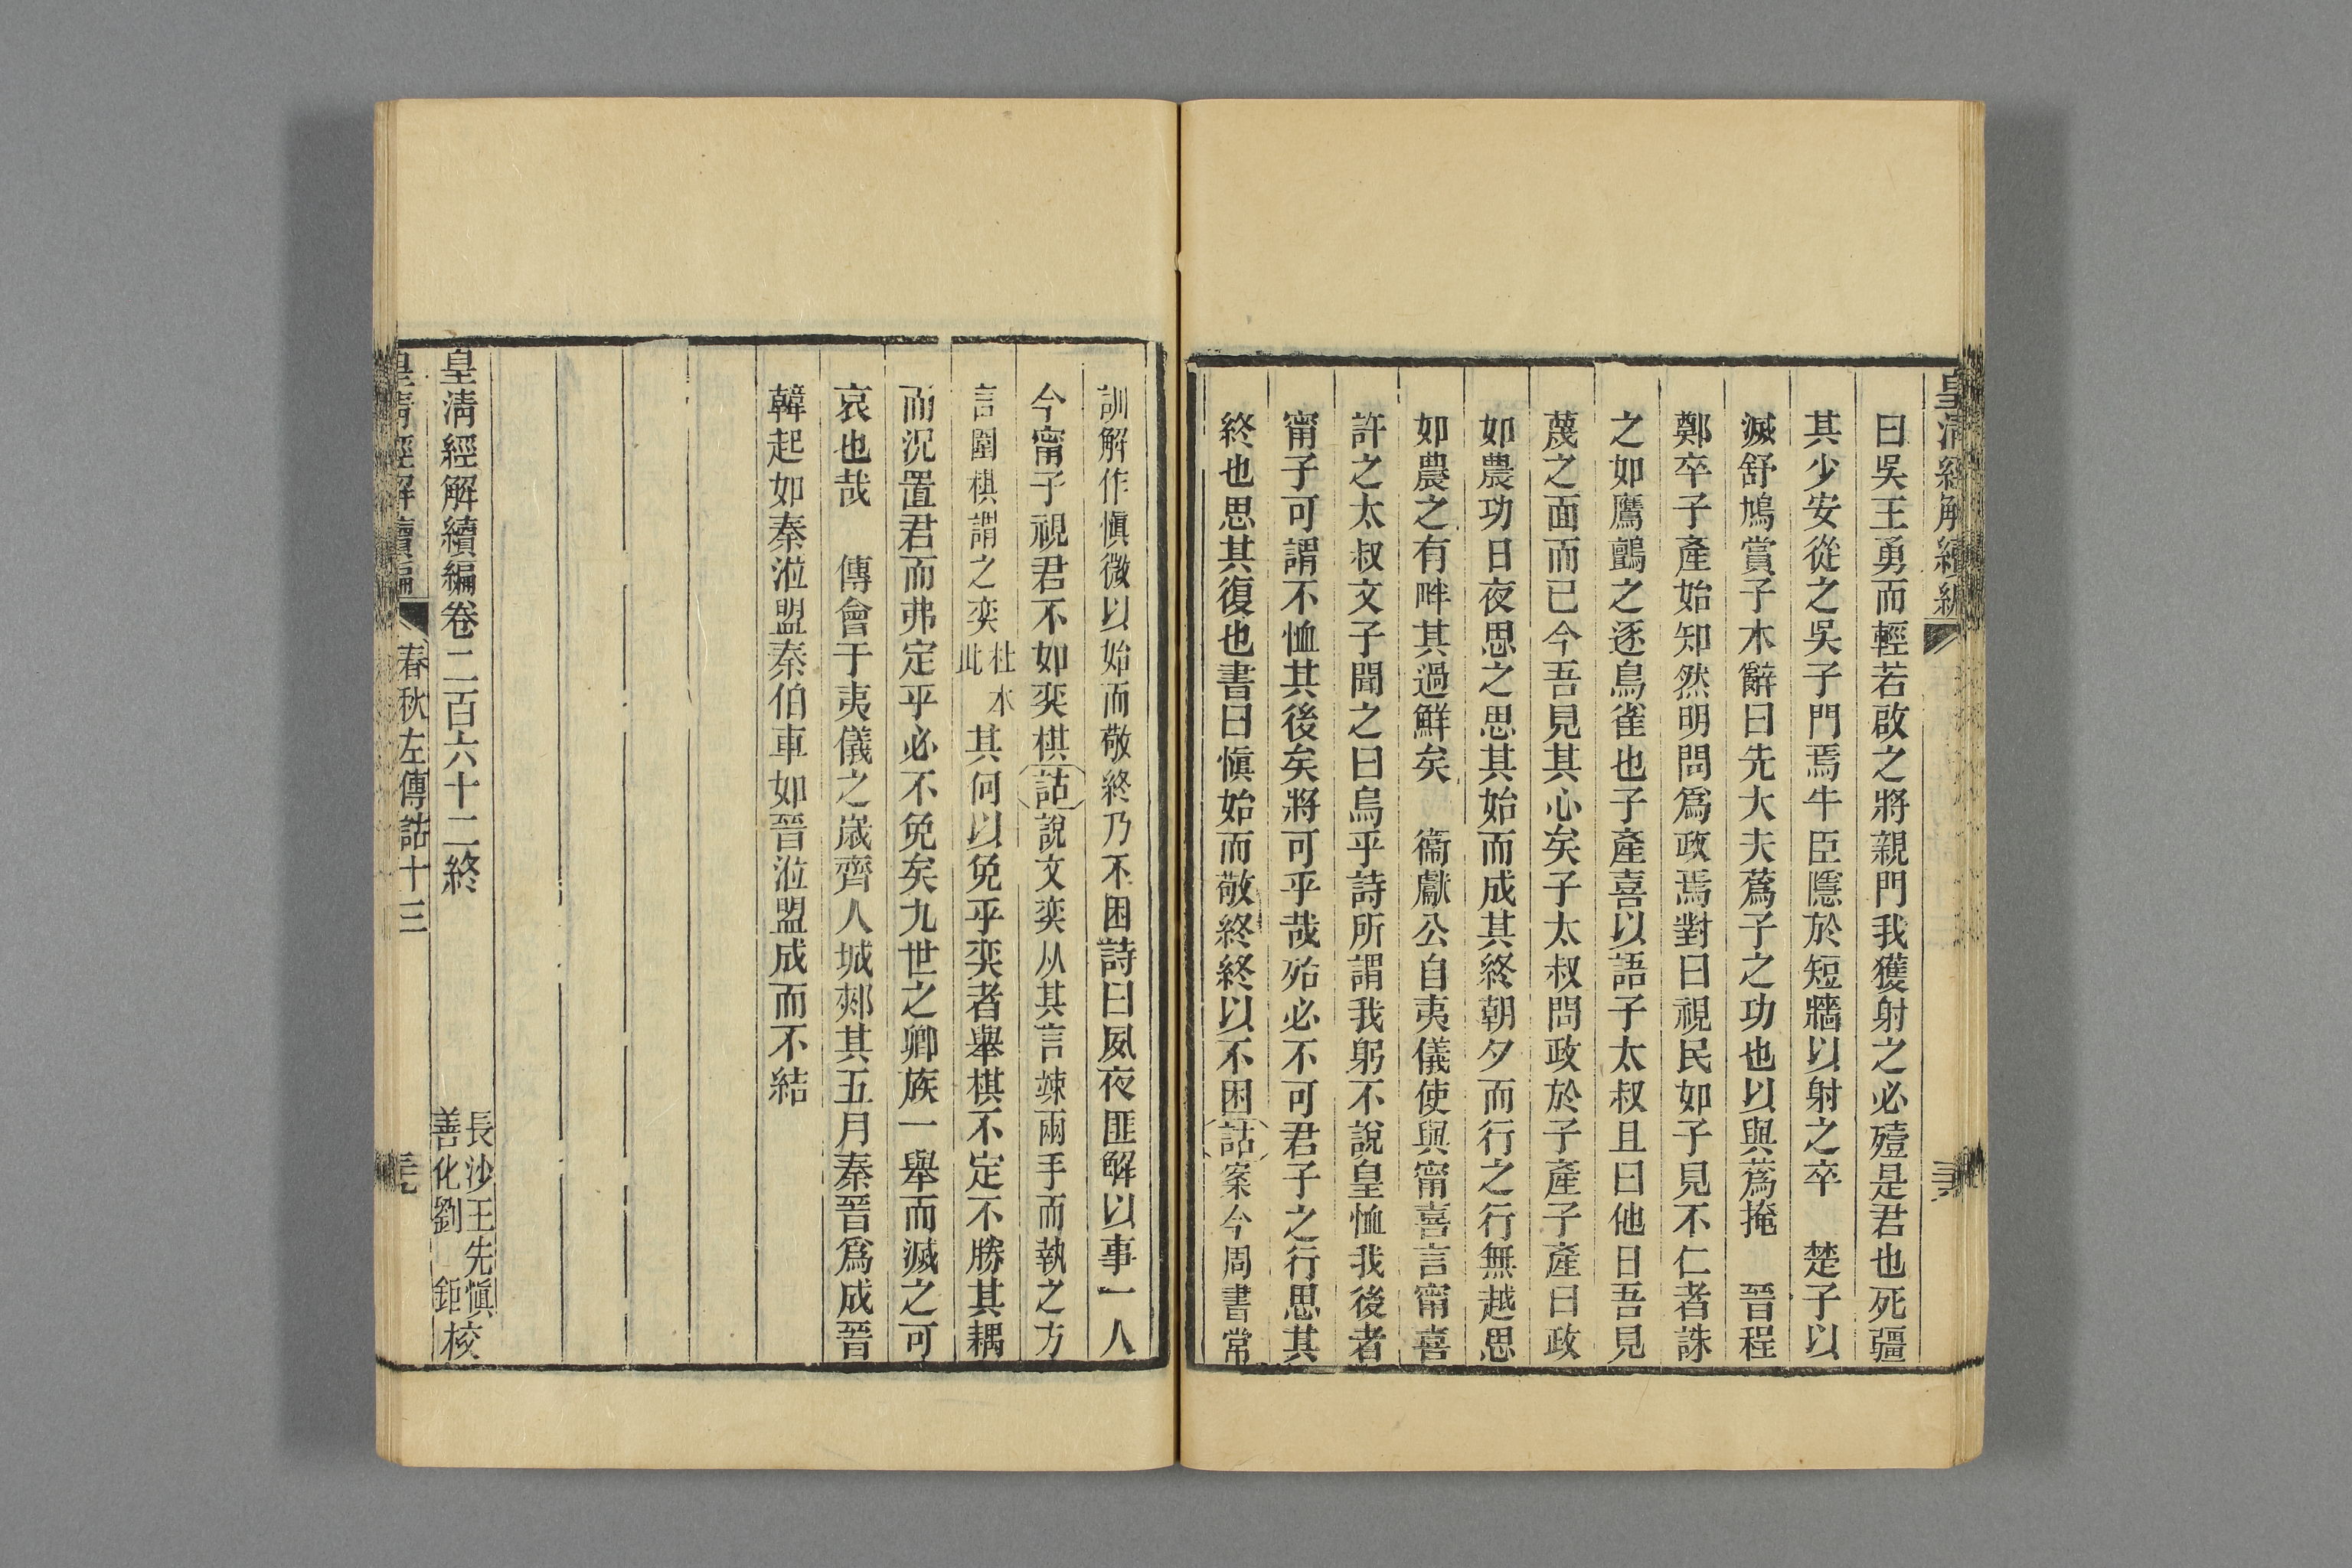 皇清經解續編
曰吳王勇而輕若啟之將親門我獲射之必殪是君也死疆
其少安從之吳子門焉牛臣隱於短牆以射之卒　楚子以
滅舒鳩賞子木辭曰先大夫蔿子之功也以與蔿掩　晉程
鄭卒子產始知然明問爲政焉對曰視民如子見不仁者誅
之如鷹鸇之逐鳥雀也子產喜以語子太叔且曰他日吾見
蔑之面而已今吾見其心矣子太叔問政於子產子產曰政
如農功日夜思之思其始而成其終朝夕而行之行無越思
如農之有畔其過鮮矣　衞獻公自夷儀使與甯喜言甯喜
許之太叔文子聞之曰烏乎詩所謂我躬不說皇恤我後者
甯子可謂不恤其後矣將可乎哉殆必不可君子之行思其
終也思其復也書曰愼始而敬終終以不困詁案今周書常
訓解作愼微以始而敬終乃不困詩曰夙夜匪解以事一人
今甯子視君不如奕棋詁說文奕从其言竦兩手而執之方
言圍棋謂之奕杜本此其何以免乎奕者舉棋不定不勝其耦
而況置君而弗定乎必不免矣九世之卿族一舉而滅之可
哀也哉　傳會于夷儀之歲齊人城郟其五月秦晉爲成晉
韓起如秦涖盟秦伯車如晉涖盟成而不結
皇清經解續編卷二百六十二終
長沙王先愼
善化劉　鉅校
皇清經解續編　春秋左傳詁十三